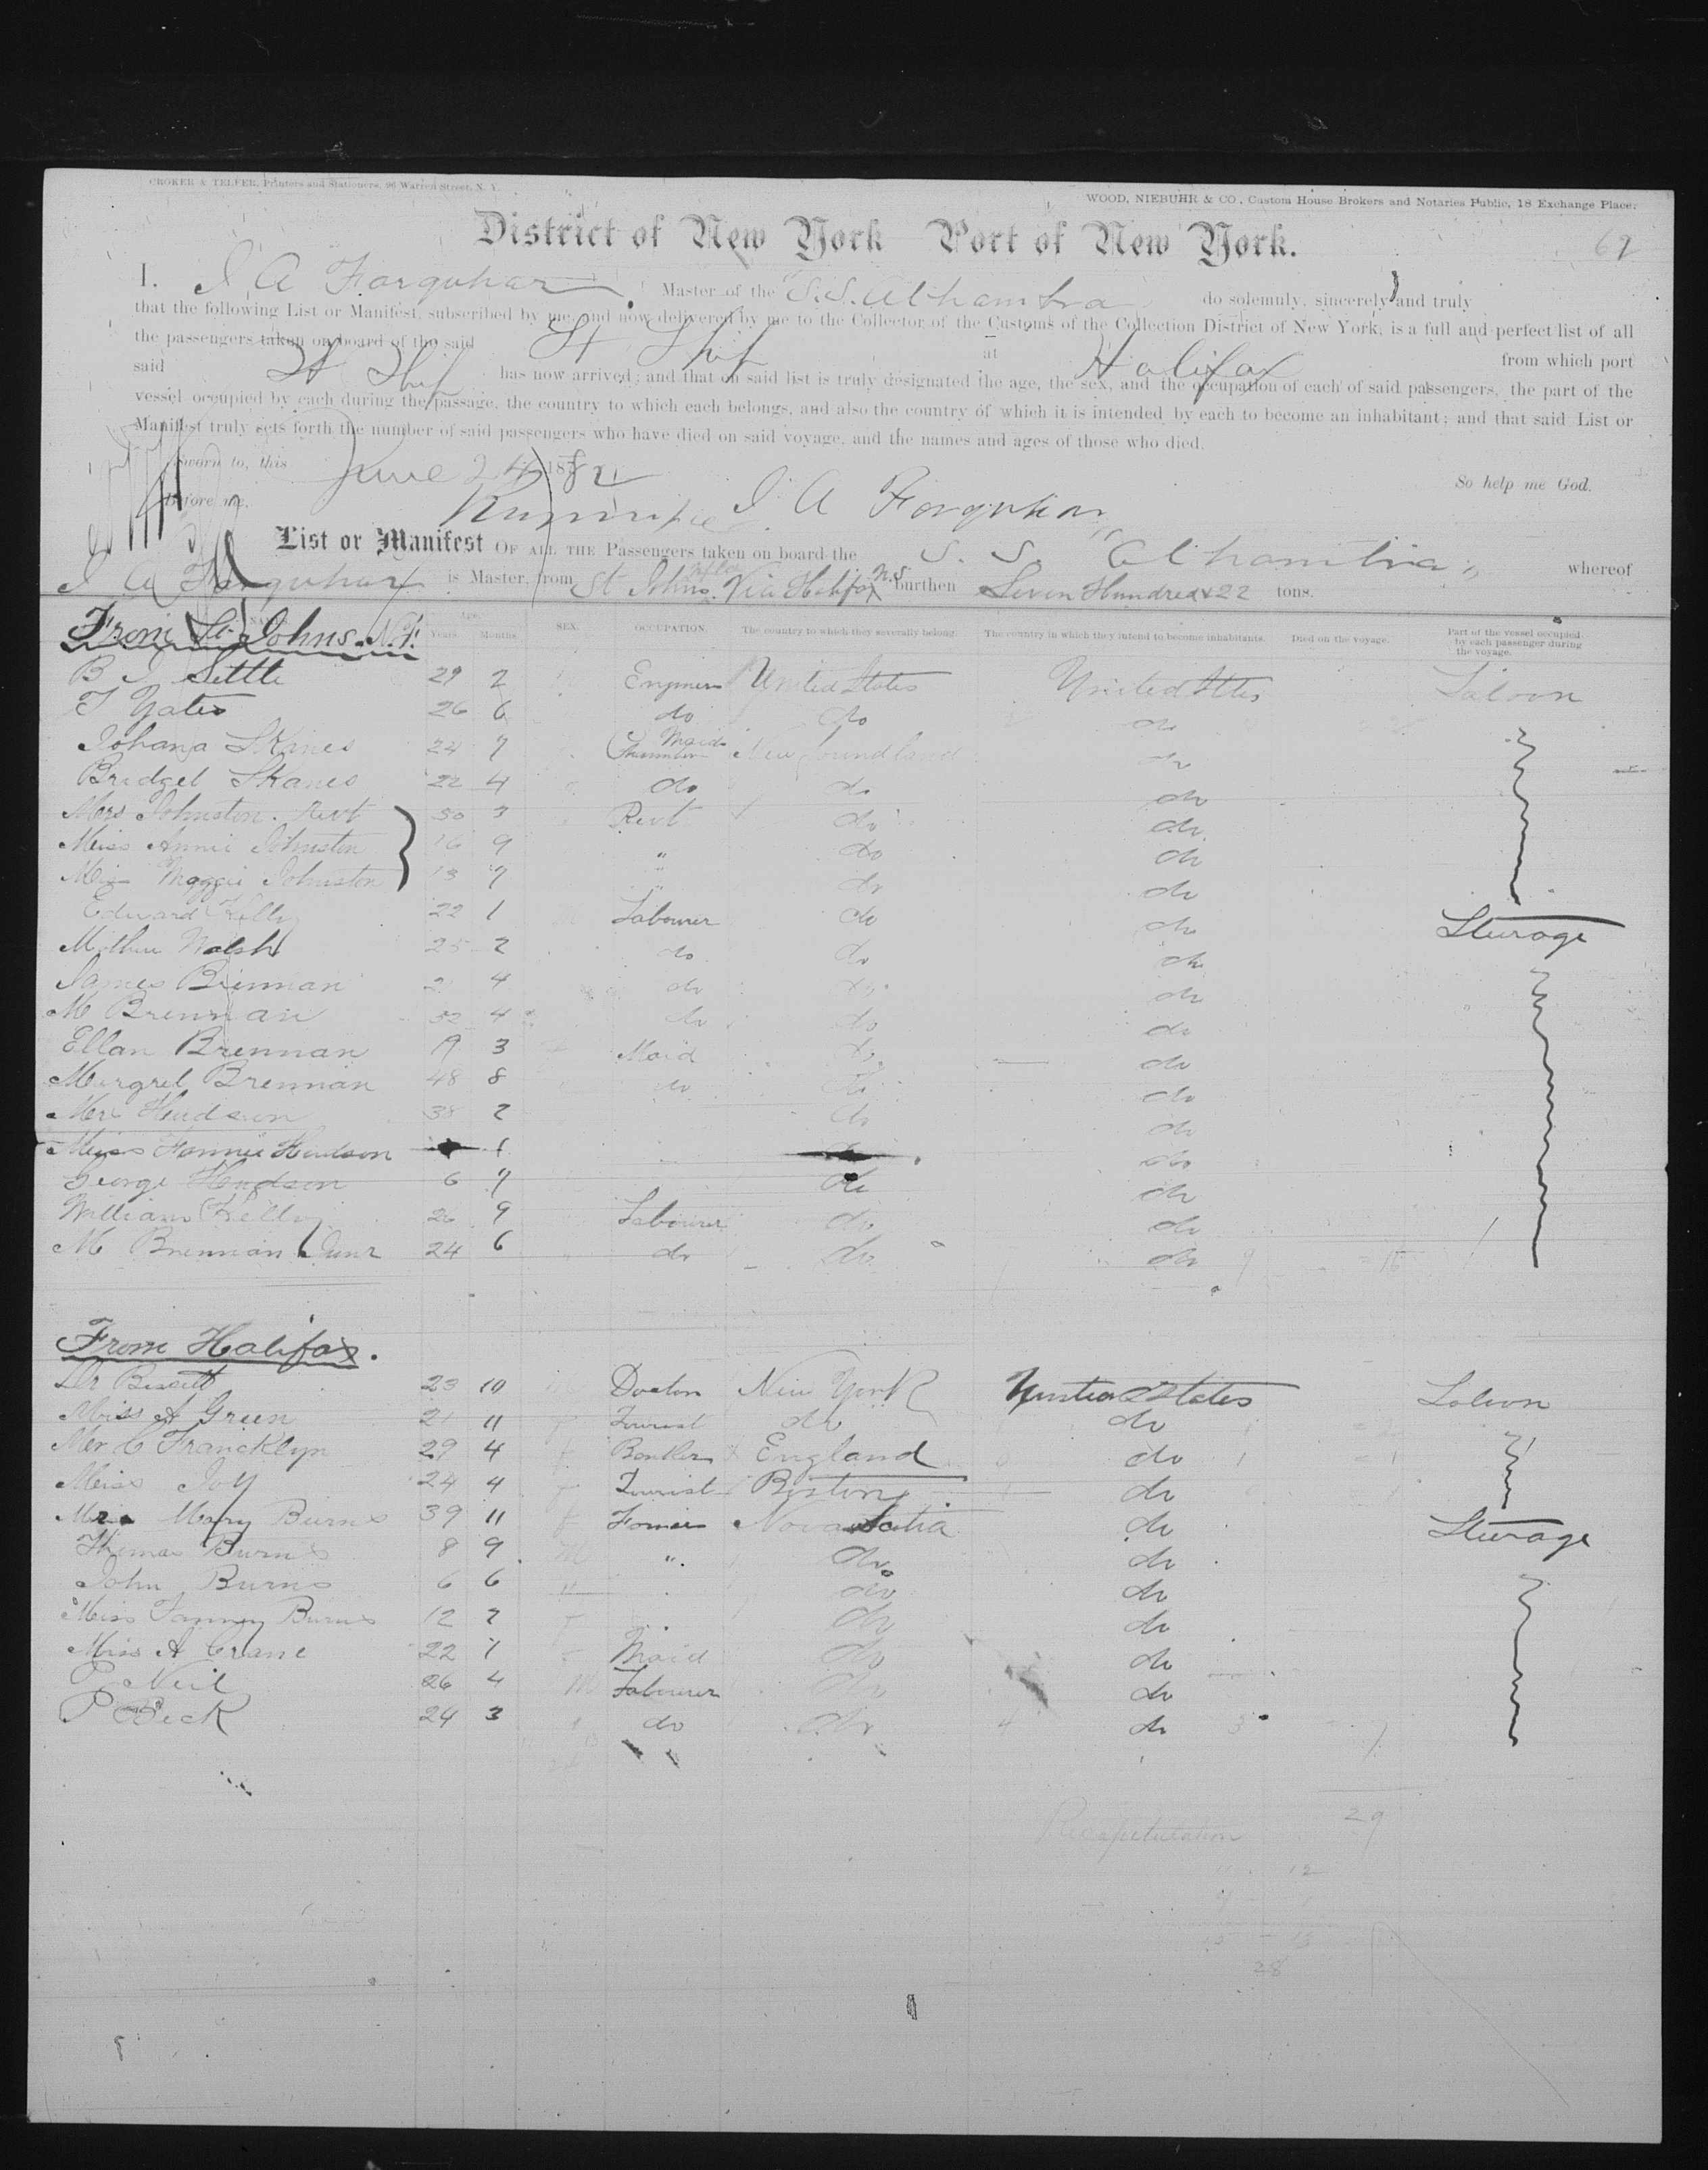 CROKER & TELFER, Printers and Stationers, 96 Warren Street, N. Y.
WOOD, NIEBUHR & CO., Custom House Brokers and Notaries Public, 18 Exchange Place.
District of New York Port of New York.
69
I, J A Farquhar Master of the S.S. Alhambra do solemnly, sincerely and truly
that the following List or Manifest, subscribed by me, and now delivered by me to the Collector of the Customs of the Collection District of New York, is a full and perfect list of all
the passengers taken on board of the said St Ship at Halifax from which port
said St Ship has now arrived; and that on said list is truly designated the age, the sex, and the occupation of each of said passengers, the part of the
vessel occupied by each during the passage, the country to which each belongs, and also the country of which it is intended by each to become an inhabitant; and that said List or
Manifest truly sets forth the number of said passengers who have died on said voyage, and the names and ages of those who died.
Sworn to, this June 24 1882 So help me God.
Before me, J A Farquhar
List or Manifest OF ALL THE Passengers taken on board the S. S. "Alhambra" whereof
J A Farquhar is Master, from St Johns Nfld Via Halifax N.S. burthen Seven Hundred & 22 tons.
NAMES. Age. Years. Months. SEX. OCCUPATION. The country to which they severally belong. The country in which they intend to become inhabitants. Died on the voyage. Part of the vessel occupied by each passenger during the voyage.
From St Johns N.F.
B J Settle 29 2 Engineer United States United States Saloon
T Yates 26 6 do do do
Johana Skanes 24 7 Chamber Maid Newfoundland do
Bridget Skanes 22 4 do do do
Mrs Johnston 50 3 do do
Miss Annie Johnston 16 9 " do do
Miss Maggie Johnston 13 7 " do do
Edward Kelly 22 1 Labourer do do Sturage
Walsh 25 2 do do do
James Brennan 4 do do do
M Brennan 32 4 do do do
Ellan Brennan 19 3 Maid do do
Margret Brennan 48 8 do do do
Hudson 38 2 do do
Miss Fannie Hudson 1 do do
George Hudson 6 7 do do
William Kelly 26 9 Labourer do do
M Brennan Junr 24 6 do do do
From Halifax.
Dr 23 10 Doctor New York United States Saloon
Miss A Green 21 11 Tourist do do
Mr C Francklyn 29 4 England do
Miss Joy 24 4 Tourist Boston do
Mrs Mary Burns 39 11 Nova Scotia do Sturage
Thomas Burns 8 9 M " do do
John Burns 6 6 " do do
Miss Fanny Burns 12 2 do do
Miss A Crane 22 1 Maid do do
P Neil 26 4 M Labourer do do
P Beck 24 3 do do do
29
Recapitulation
12
28